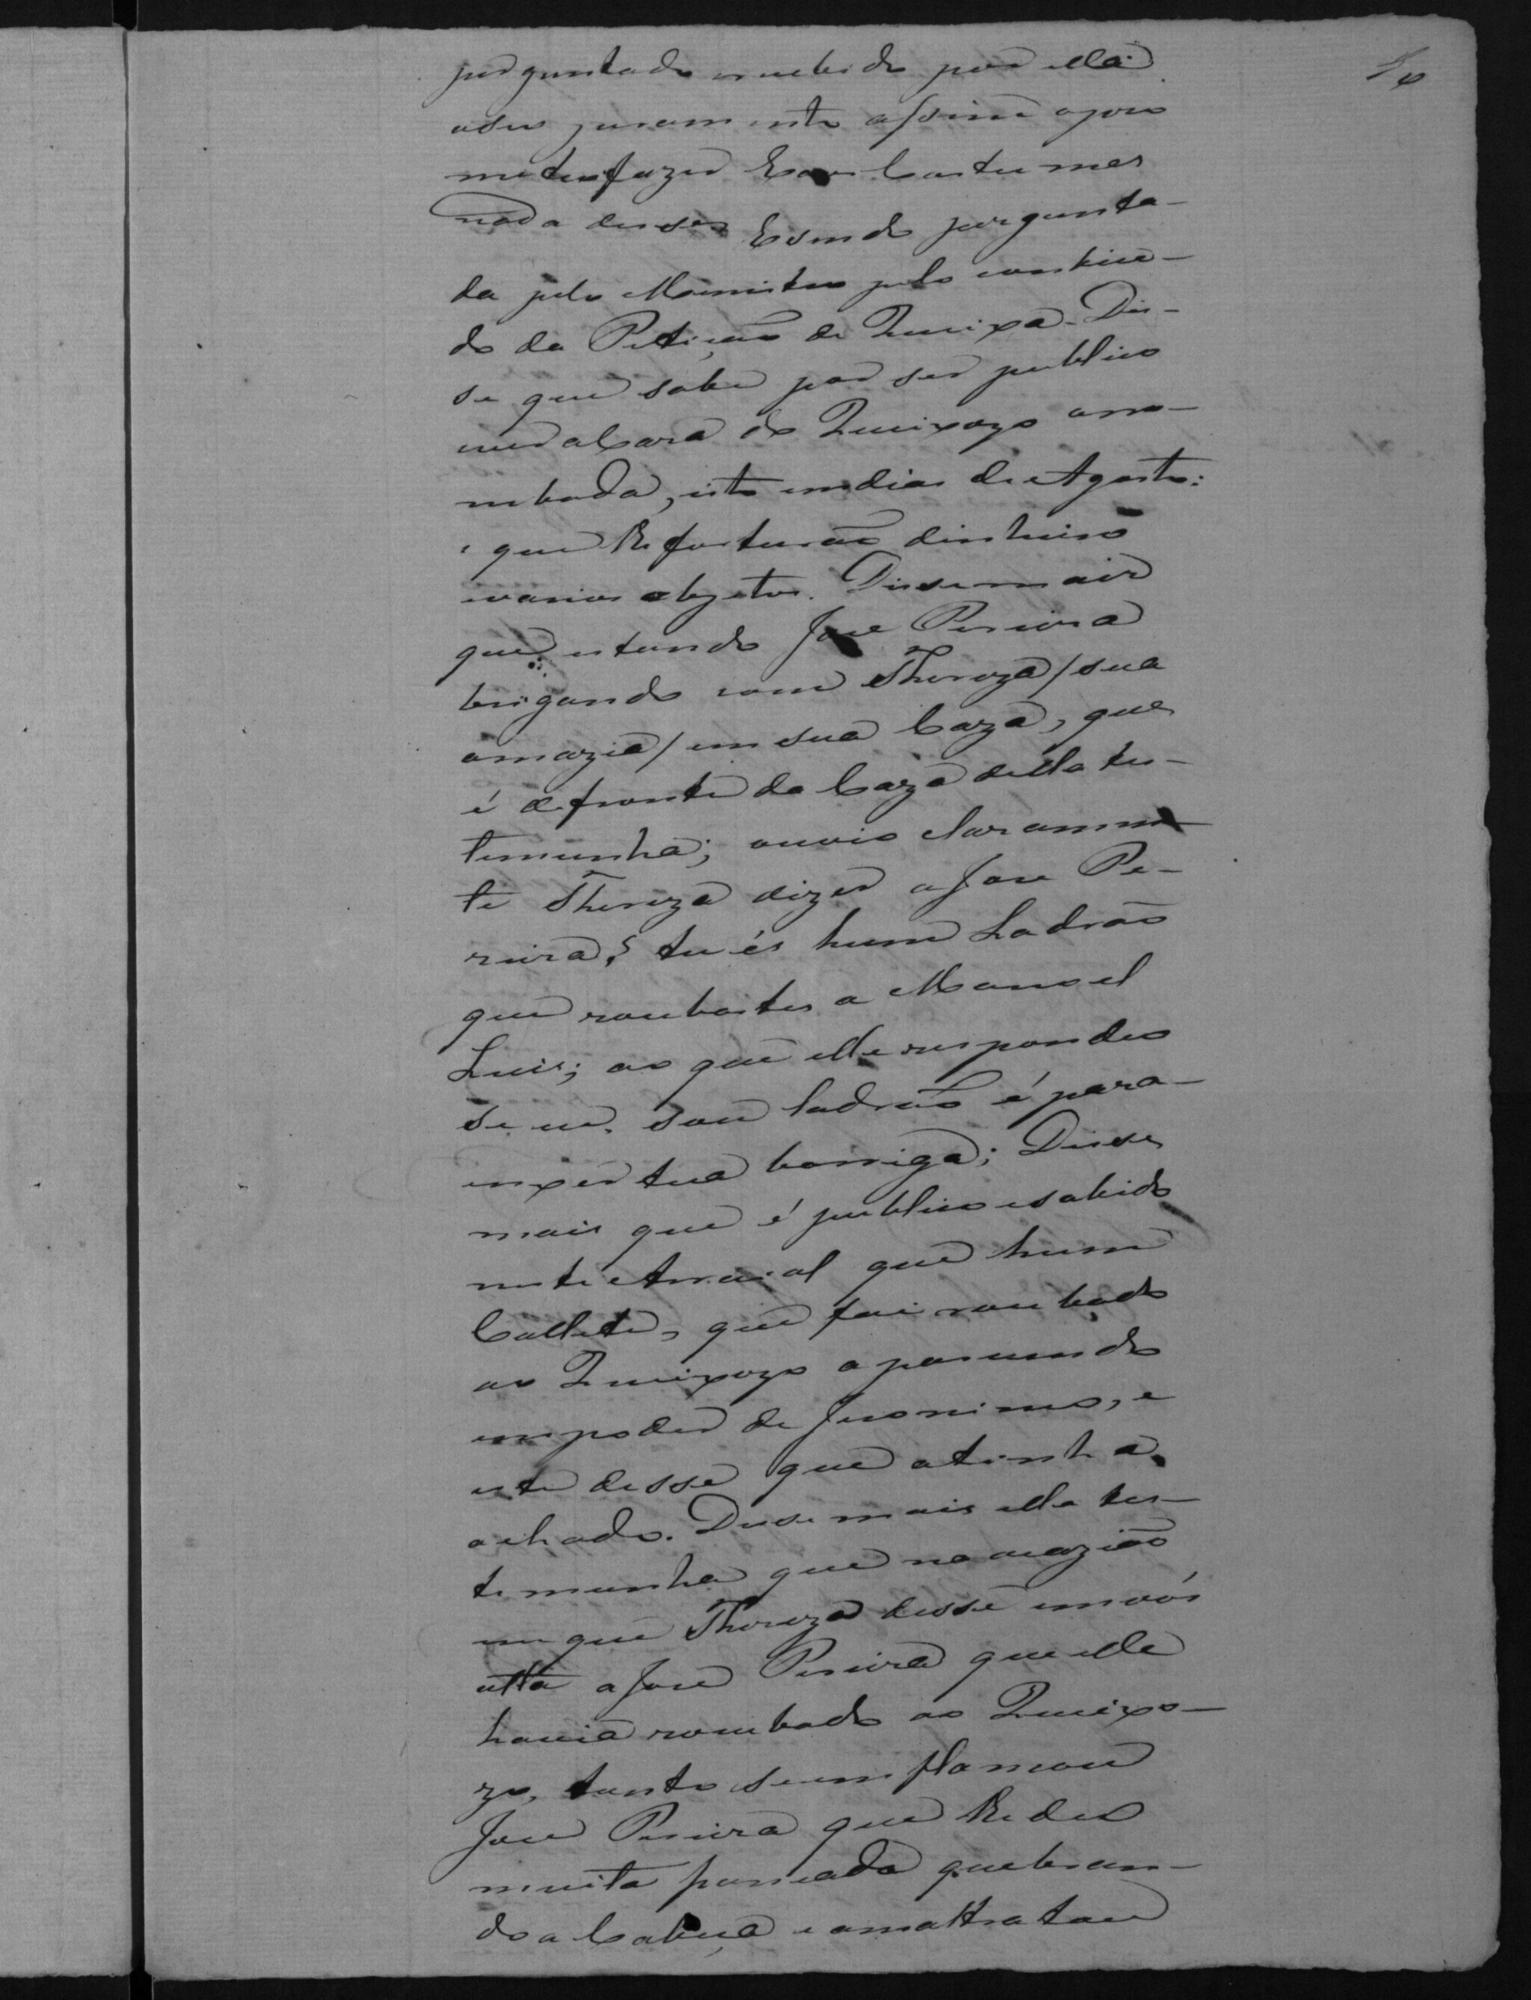 perguntado recebido por ella
o seu juramento assim o pro
meteo fazer E aos Costumes
nada disse Esendo pergunta-
da pelo Menistro pelo contheu-
do da Petiçaõ de Queixa. Dis-
se que sabe por ser publico
ser a Caza do Queixozo arro-
mbada, isto em dias de Agosto:
e que lhe furturaõ dinheiro
e varios objetos. Disse mais
que estando Joze Pereira
brigando com Thereza / sua
amazia / em sua Caza, que
é defronte da Caza della tes-
temunha; ouvio claramen-
te Thereza dizer a Joze Pe-
reira, tu és hum Ladrão
que roubastes a Manoel
Luis; ao que elle respondeo
se eu sou ladraõ é para
enxer tua barriga; Disse
mais que é publico e sabido
neste Arraial que hum
Collete, que foi roubado
ao Queixozo apareceudo
em poder de Jeronimo, e
este disse que o tinha
achado. Disse mais ella tes-
temunha que na occazião
em que Thereza disse em vós
alta a Joze Pereira que elle
havia roubado ao Queixo-
zo, tanto se emflamou
Joze Pereira que lhe deo
muita pancada quebran-
do a Cabeça e a maltratou